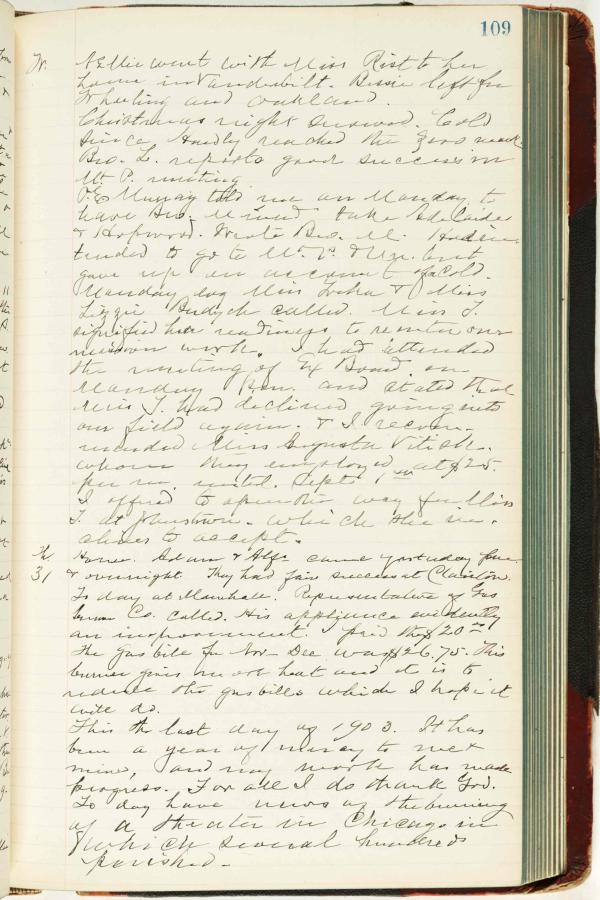 109
W. Nellie went with Miss Rist to her
home in Vanderbilt. Bessie left for
Wheeling and Oakland.
Christmas night snowed. Cold
since. Hardly reached the zero mark.
Bro. L. reports good success in
Mt. P. meeting
P. E. Murray told me on Monday to
have Bro. take Adelaide
& Hopwood. Wrote Bro. M. Had in-
tended to go to Mt. P. & but
gave up on account of cold.
Monday Miss & Miss
Lizzie called. Miss T.
signified her readiness to reenter our
mission work. I had attended
the meeting of Ex Board on
Monday and stated that
Miss T. had declined going into
our field again. & I recom-
mended Miss Augusta
whom they employed at $25.
per m. until Sept. 1st
I offered to open the way for Miss
T. at Johnstown. which she in-
clines to accept.
Th. Home. Adam & Alf. came yesterday
31 & overnight. They had fair success at Clairton.
To day at Munhall. Representative of Gas
burner Co. called. His appliance evidently
an improvement. $20
The Gas bill for Nov - Dec was $26.75. This
burner gives more heat and it is to
reduce the gas bills which I hope it
will do.
This the last day of 1903. It has
been a year of mercy to me &
mine, and my work has made
progress. For all I do thank God.
To day have news of the burning
of a theater in Chicago in
which several hundreds
perished -